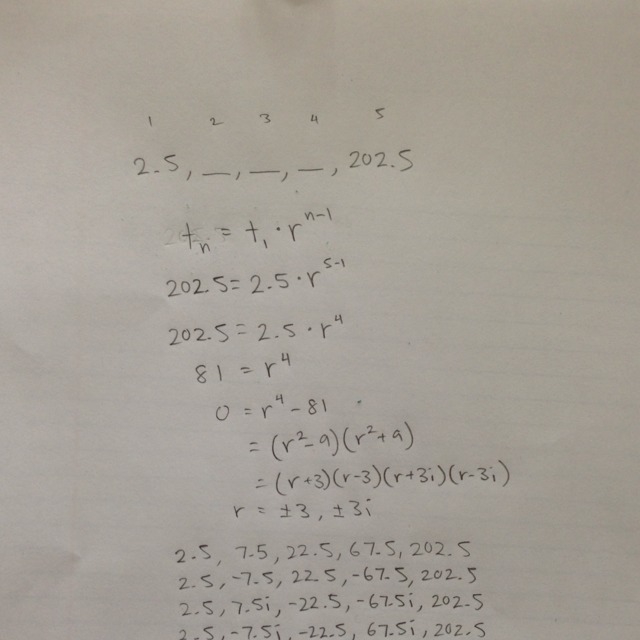 1 2 3 4 5
2.5, __, __, __, 202.5
tₙ = t₁ · rⁿ⁻¹
202.5 = 2.5 · r⁵⁻¹
202.5 = 2.5 · r⁴
81 = r⁴
0 = r⁴ - 81
= (r² - 9)(r² + 9)
= (r+3)(r-3)(r+3i)(r-3i)
r = ±3, ±3i
2.5, 7.5, 22.5, 67.5, 202.5
2.5, -7.5, 22.5, -67.5, 202.5
2.5, 7.5i, -22.5, -67.5i, 202.5
2.5, -7.5i, -22.5, 67.5i, 202.5